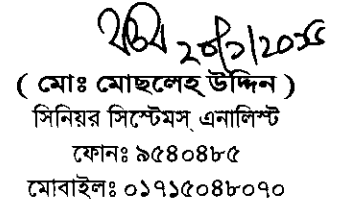 ( মোঃ মোছলেহ উদ্দিন )
সিনিয়র সিস্টেমস্ এনালিস্ট
ফোনঃ ৯৫৪০৪৮৫
মোবাইলঃ ০১৭১৫০৪৮০৭০